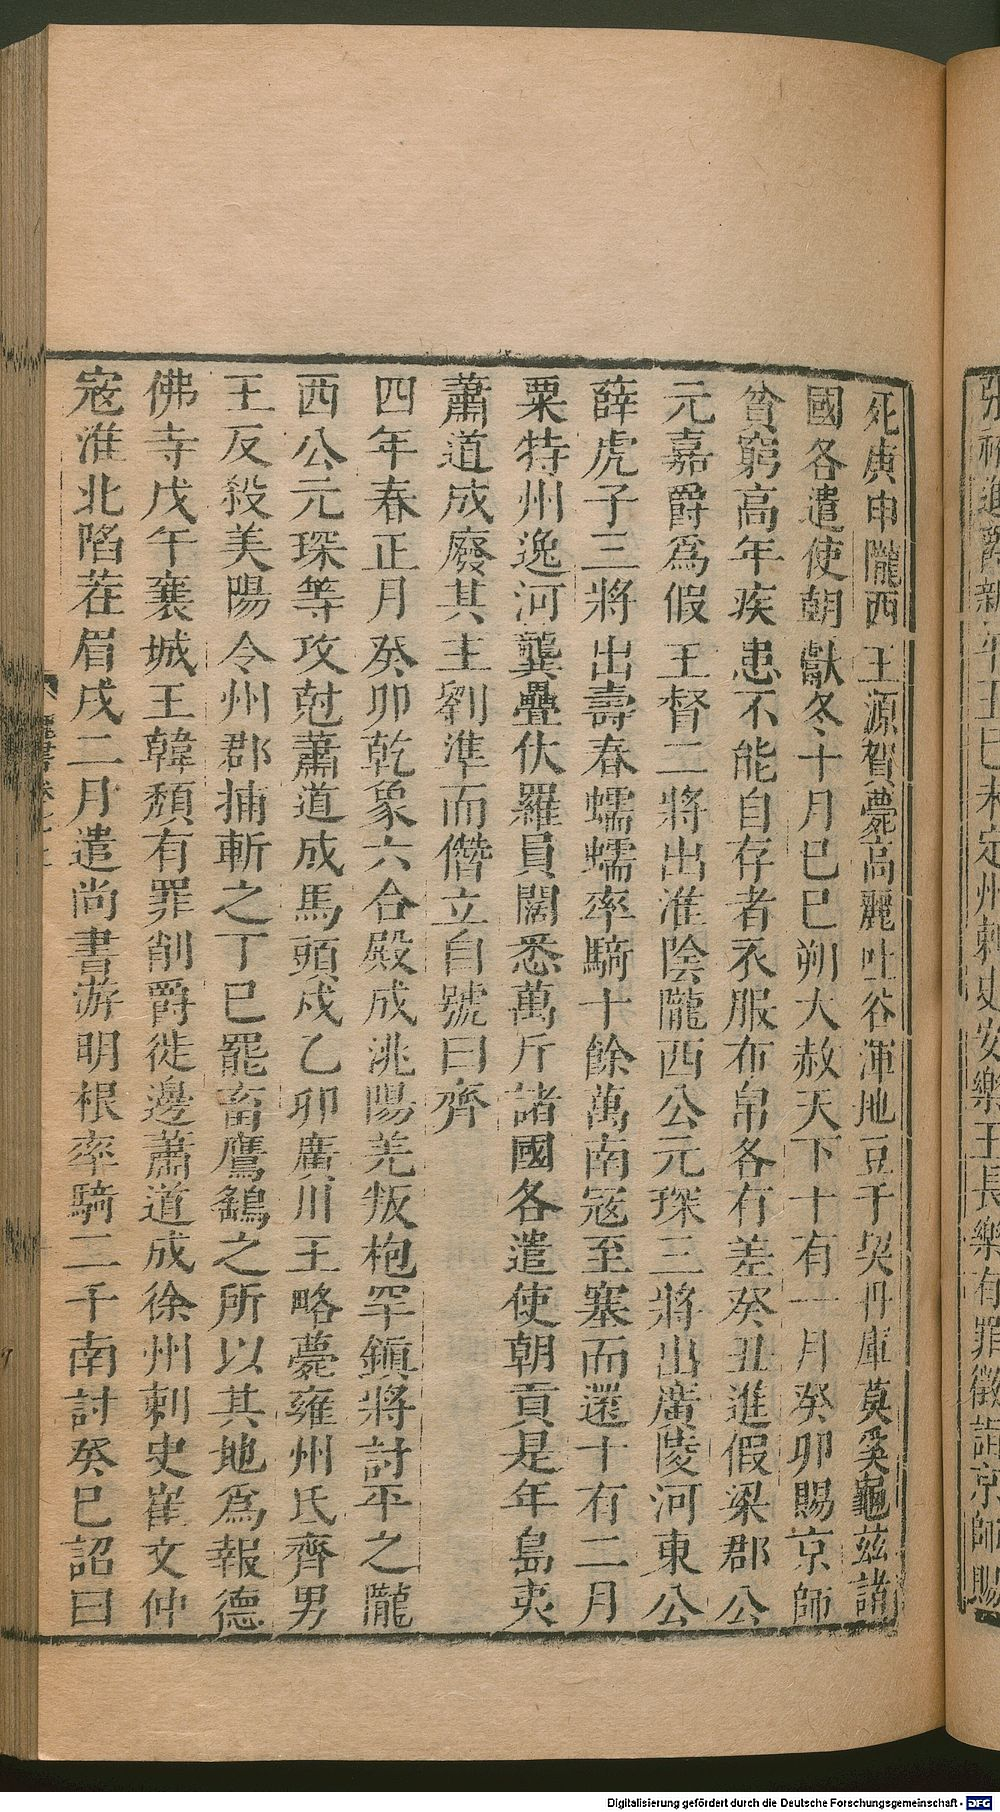 死庚申隴西王源賀薨高麗吐谷渾地豆于契丹庫莫奚龜兹諸
國各遣使朝獻冬十月己巳朔大赦天下十有一月癸卯賜京師
貧窮高年疾患不能自存者衣服布帛各有差癸丑進假梁郡公
元嘉爵爲假王督二將出淮陰隴西公元琛三將出廣陵河東公
薛虎子三將出壽春蠕蠕率騎十餘萬南寇至塞而還十有二月
粟特州逸河龔疊伏羅員闊悉萬斤諸國各遣使朝貢是年島夷
蕭道成廢其主劉準而僭立自號曰齊
四年春正月癸卯乾象六合殿成洮陽羌叛枹罕鎮將討平之隴
西公元琛等攻尅蕭道成馬頭戍乙卯廣川王略薨雍州氐齊男
王反殺美陽令州郡捕斬之丁巳罷畜鷹鷂之所以其地爲報德
佛寺戊午襄城王韓頹有罪削爵徙邊蕭道成徐州刺史崔文仲
寇淮北陷茬眉戌二月遣尚書游明根率騎二千南討癸巳詔曰
定州刺史安樂王長樂有罪徵詣京師賜
Digitalisierung gefördert durch die Deutsche Forschungsgemeinschaft - DFG